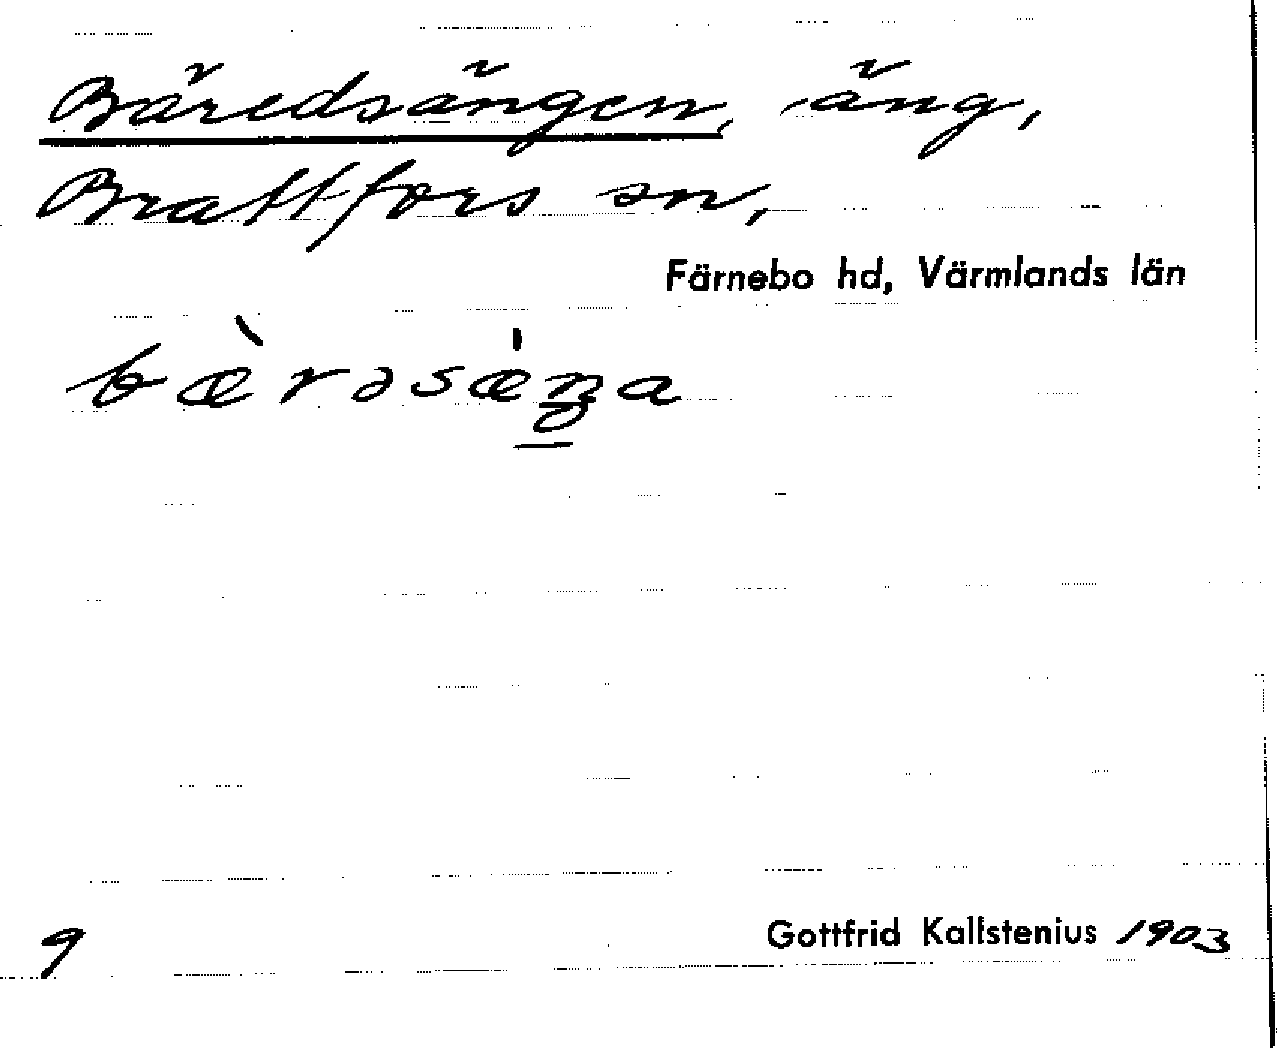 Bäredsängen, äng,
Brattfors sn,
Färnebo hd, Värmlands län
bæ̀rəsæ̍ŋa
9
Gottfrid Kallstenius 1903